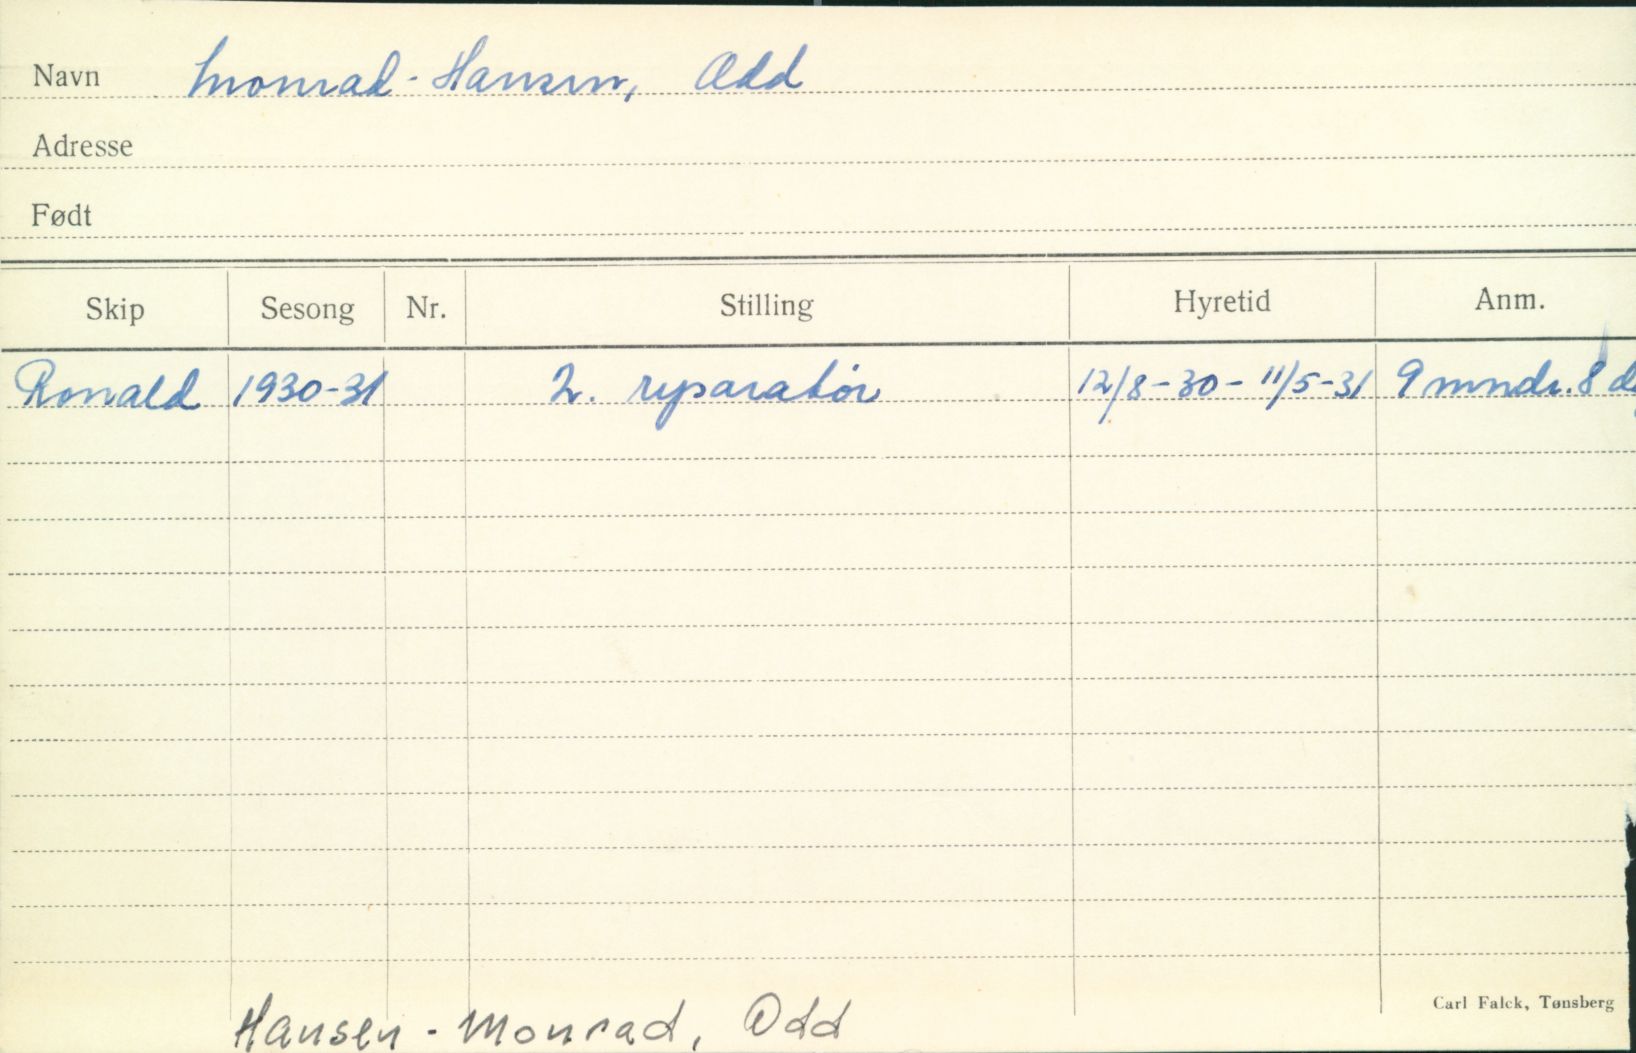 Navn Monrad-Hansen, Odd
Adresse
Født
Skip Sesong Nr. Stilling Hyretid Anm.
Ronald 1930-31 2. reparatör 12/8-30- 11/5-31 9 mndr. 8 d
Carl Falck, Tønsberg
Hansen - Monrad, Odd